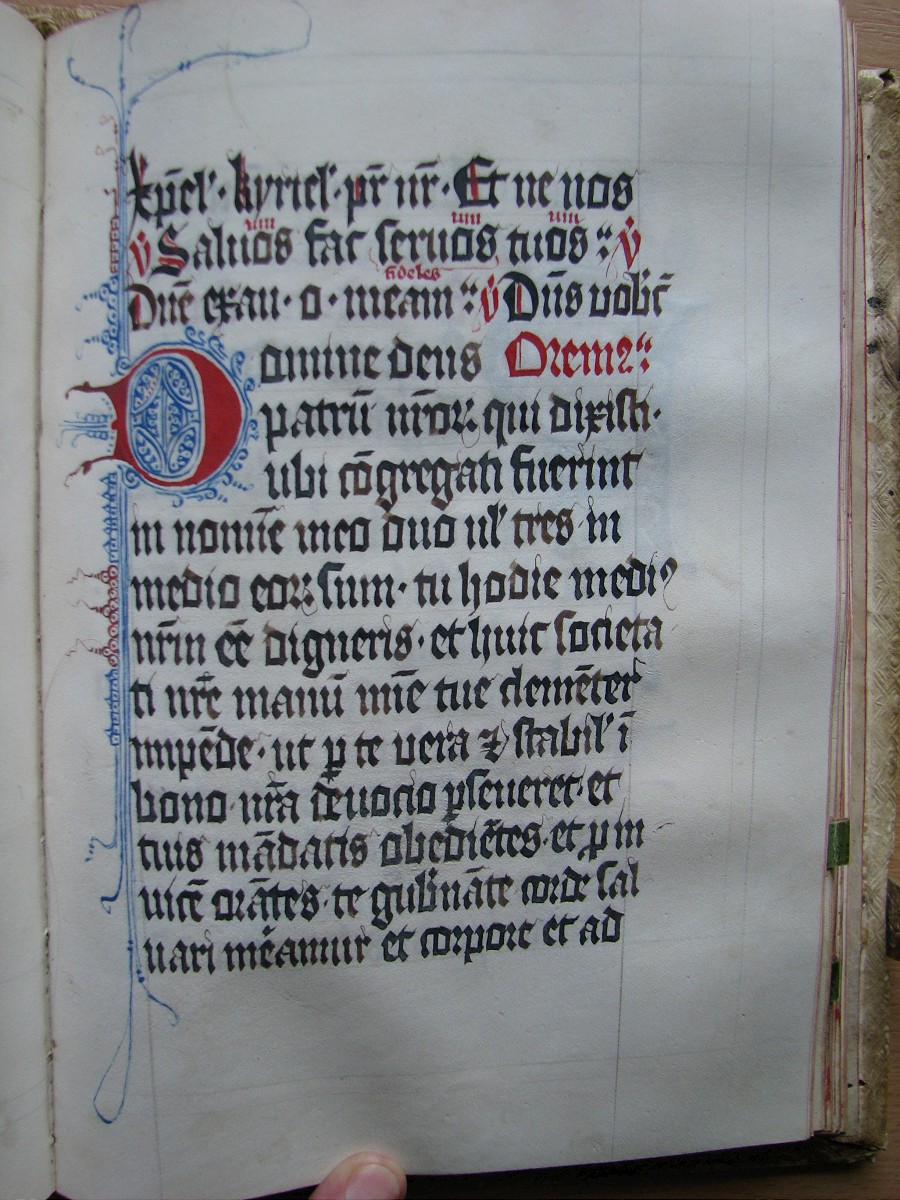 xp̄el'· kyriel'· pr̄ nr̄· Et ne nos
℣ Saluos fac seruos tuos : ℣
fideles
Dn̄e exau· o· meam : ℣ Dn̄s uobic̄
Domine deus Oremꝰ :
patrū nr̄oꝝ qui dixisti·
ubi cōgregati fuerint
in noīe meo duo ul' tres in
medio eoꝝ sum· tu hodie mediꝰ
nr̄m eē digneris· et huic societa
ti nr̄e manū mīe tue clemēter
impēde· ut ꝑ te uera ⁊ stabil' ī
bono nr̄a deuocio ꝑseueret· et
tuis mādatis obediētes· et ꝑ in
uicē orātes· te gub̄nāte corde sal
uari meāmur et corpore et ad